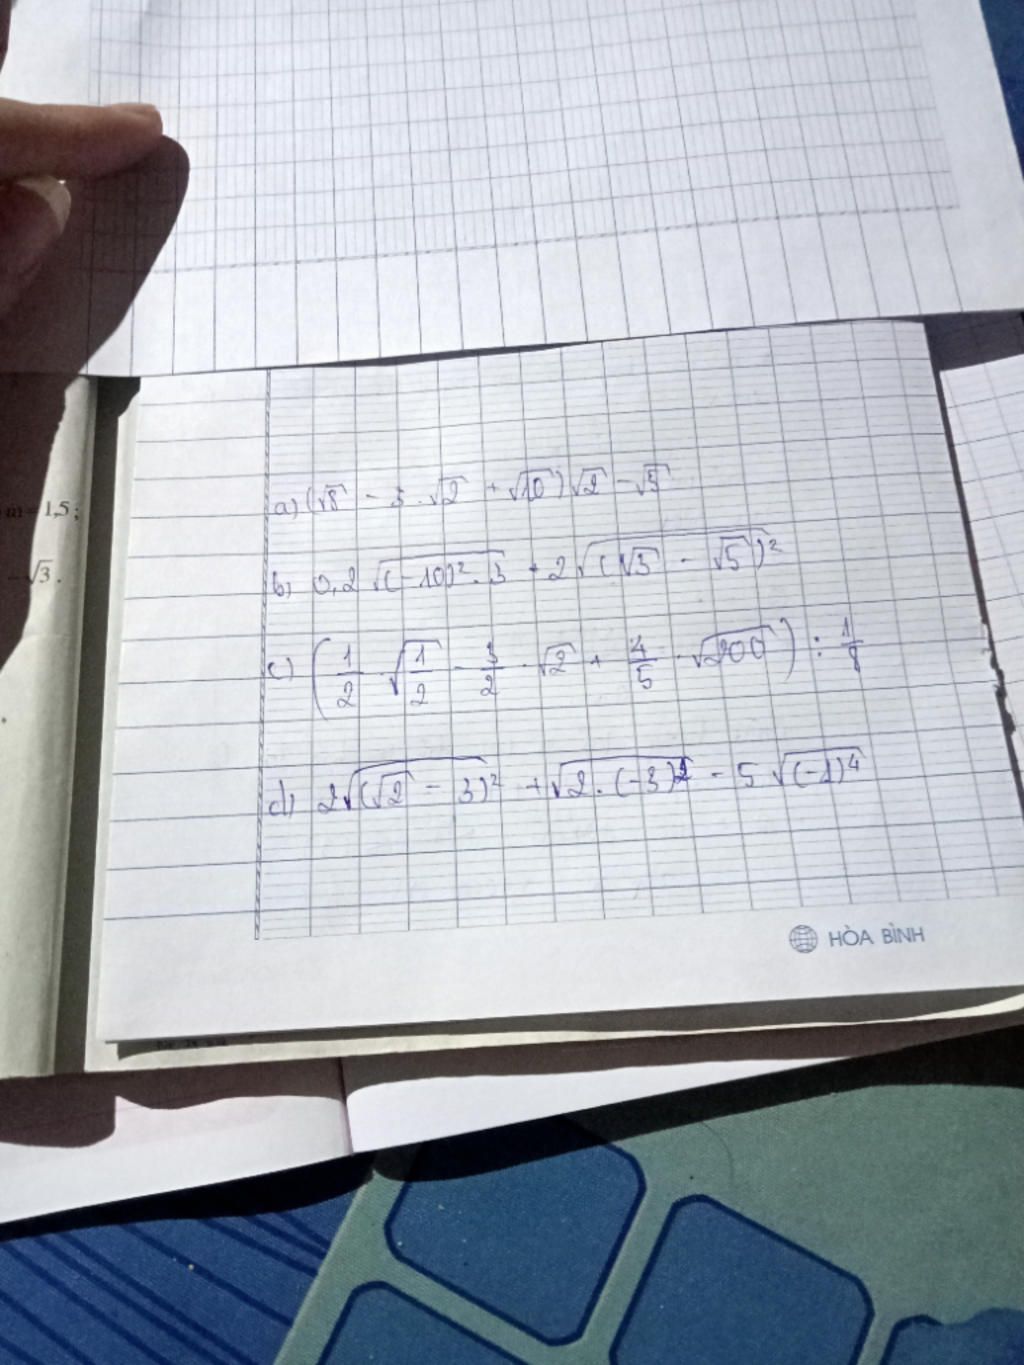 m = 1,5;
-√3.
a) (√8 - 3.√2 + √10)√2 - √5
b) 0,2 √((-10)².3) + 2√((√3 - √5)²)
c) (1/2 . √(1/2) - 3/2 . √2 + 4/5 . √200) : 1/8
d) 2√((√2 - 3)²) + √(2.(-3)²) - 5√((-1)⁴)
HÒA BÌNH